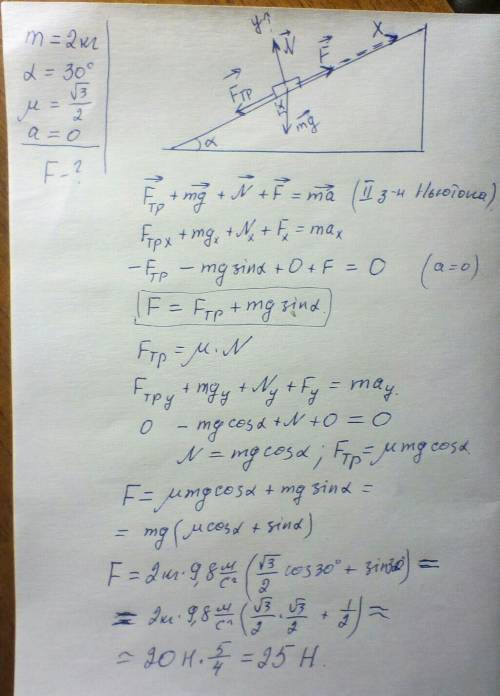 m = 2кг
α = 30°
μ = √3/2
a = 0
F - ?
y
N⃗
F⃗
x
F⃗тр
mg⃗
α
F⃗тр + mg⃗ + N⃗ + F⃗ = ma⃗ (II з-н Ньютона)
Fтрx + mgx + Nx + Fx = max
-Fтр - mg sinα + 0 + F = 0 (a=0)
F = Fтр + mg sinα.
Fтр = μ·N
Fтрy + mgy + Ny + Fy = may.
0 - mg cosα + N + 0 = 0
N = mg cosα ; Fтр = μmg cosα
F = μmg cosα + mg sinα =
= mg(μcosα + sinα)
F = 2кг·9,8 м/с² (√3/2 cos30° + sin30°) =
= 2кг·9,8 м/с² (√3/2 · √3/2 + 1/2) ≈
≈ 20Н · 5/4 = 25 Н.